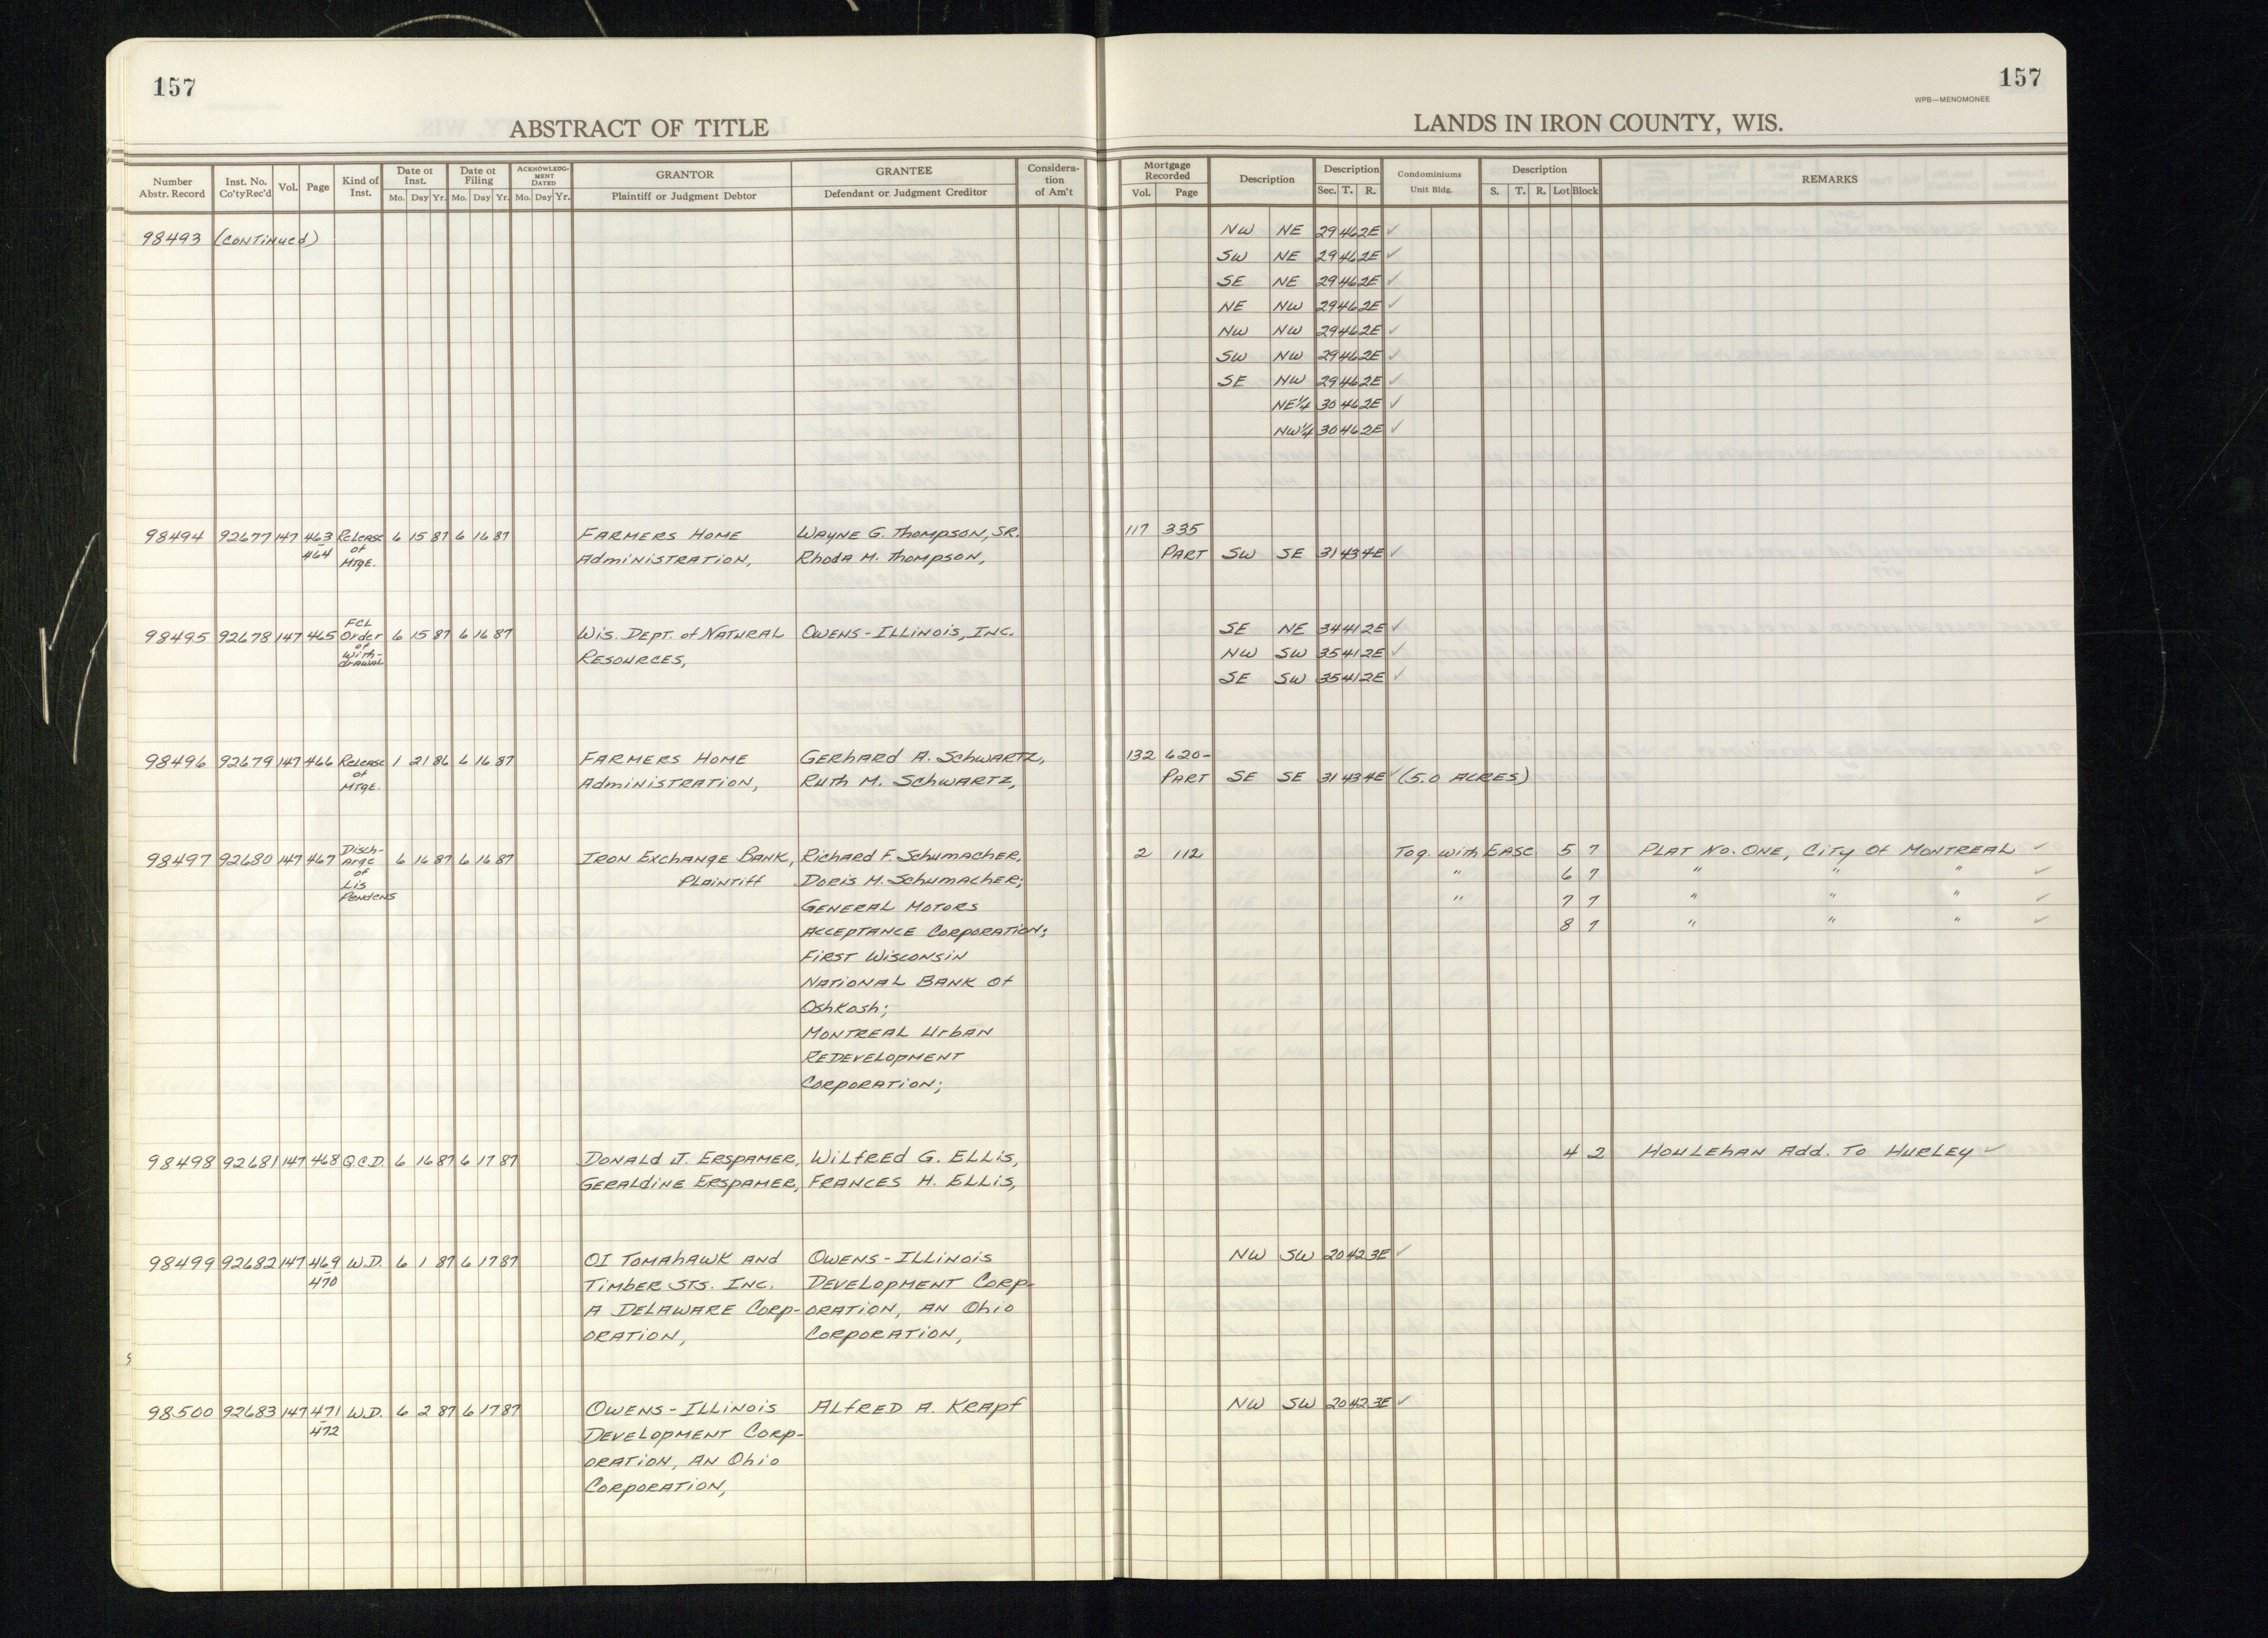 157
157
WPB—MENOMONEE
ABSTRACT OF TITLE
LANDS IN IRON COUNTY, WIS.
Number Abstr. Record | Inst. No. Co'ty Rec'd | Vol. | Page | Kind of Inst. | Date of Inst. Mo. Day Yr. | Date of Filing Mo. Day Yr. | ACKNOWLEDGMENT DATED Mo. Day Yr. | GRANTOR Plaintiff or Judgment Debtor | GRANTEE Defendant or Judgment Creditor | Consideration of Am't | Mortgage Recorded Vol. Page | Description | Description Sec. T. R. | Condominiums Unit Bldg. | Description S. T. R. Lot Block | REMARKS
98493 (CONTINUED) NW NE 29 46 2E ✓
SW NE 29 46 2E ✓
SE NE 29 46 2E ✓
NE NW 29 46 2E ✓
NW NW 29 46 2E ✓
SW NW 29 46 2E ✓
SE NW 29 46 2E ✓
NE¼ 30 46 2E ✓
NW¼ 30 46 2E ✓
98494 92677 147 463-464 Release of Mtge. 6 15 87 6 16 87 FARMERS HOME WAYNE G. THOMPSON, SR. 117 335
ADMINISTRATION, Rhoda M. Thompson, PART SW SE 31 43 4E ✓
98495 92678 147 465 FCL Order of With-drawal 6 15 87 6 16 87 Wis. DEPT. of NATURAL OWENS-ILLINOIS, INC. SE NE 34 41 2E ✓
RESOURCES, NW SW 35 41 2E ✓
SE SW 35 41 2E ✓
98496 92679 147 466 Release of Mtge. 1 21 86 6 16 87 FARMERS HOME GERHARD A. SCHWARTZ, 132 620-
ADMINISTRATION, RUTH M. SCHWARTZ, PART SE SE 31 43 4E ✓ (5.0 ACRES)
98497 92680 147 467 Disch-arge of Lis Pendens 6 16 87 6 16 87 IRON EXCHANGE BANK, Richard F. Schumacher, 2 112 Tog. with Ease 5 7 PLAT No. ONE, CITY OF MONTREAL ✓
Plaintiff DORIS M. SCHUMACHER; " 6 7 " " " ✓
GENERAL MOTORS " 7 7 " " " ✓
ACCEPTANCE CORPORATION; 8 7 " " " ✓
FIRST WISCONSIN
NATIONAL BANK OF
OSHKOSH;
MONTREAL URBAN
REDEVELOPMENT
CORPORATION;
98498 92681 147 468 Q.C.D. 6 16 87 6 17 87 DONALD J. ERSPAMER, WILFRED G. ELLIS, 4 2 HOULEHAN Add. TO HURLEY ✓
GERALDINE ERSPAMER, FRANCES H. ELLIS,
98499 92682 147 469-470 W.D. 6 1 87 6 17 87 OI TOMAHAWK AND OWENS-ILLINOIS NW SW 20 42 3E ✓
TIMBER STS. INC. DEVELOPMENT CORP-
A DELAWARE CORP- ORATION, AN OHIO
ORATION, CORPORATION,
98500 92683 147 471-472 W.D. 6 2 87 6 17 87 OWENS-ILLINOIS ALFRED A. KRAPF NW SW 20 42 3E ✓
DEVELOPMENT CORP-
ORATION, AN OHIO
CORPORATION,